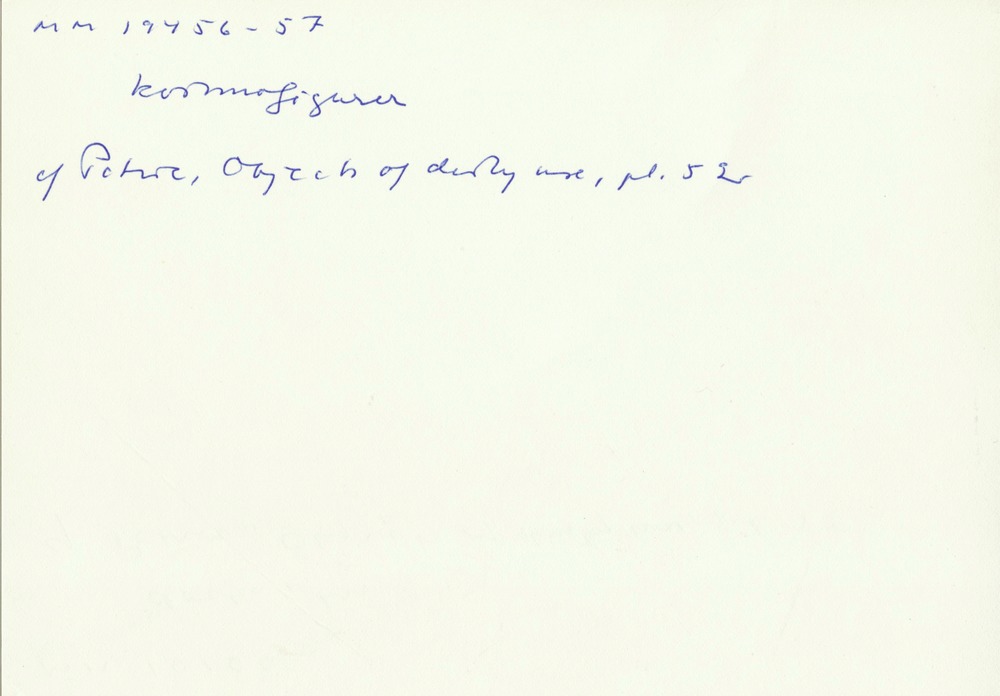 MM 19456-57
kvinnofigurer
cf Petrie, Objects of daily use, pl. 52